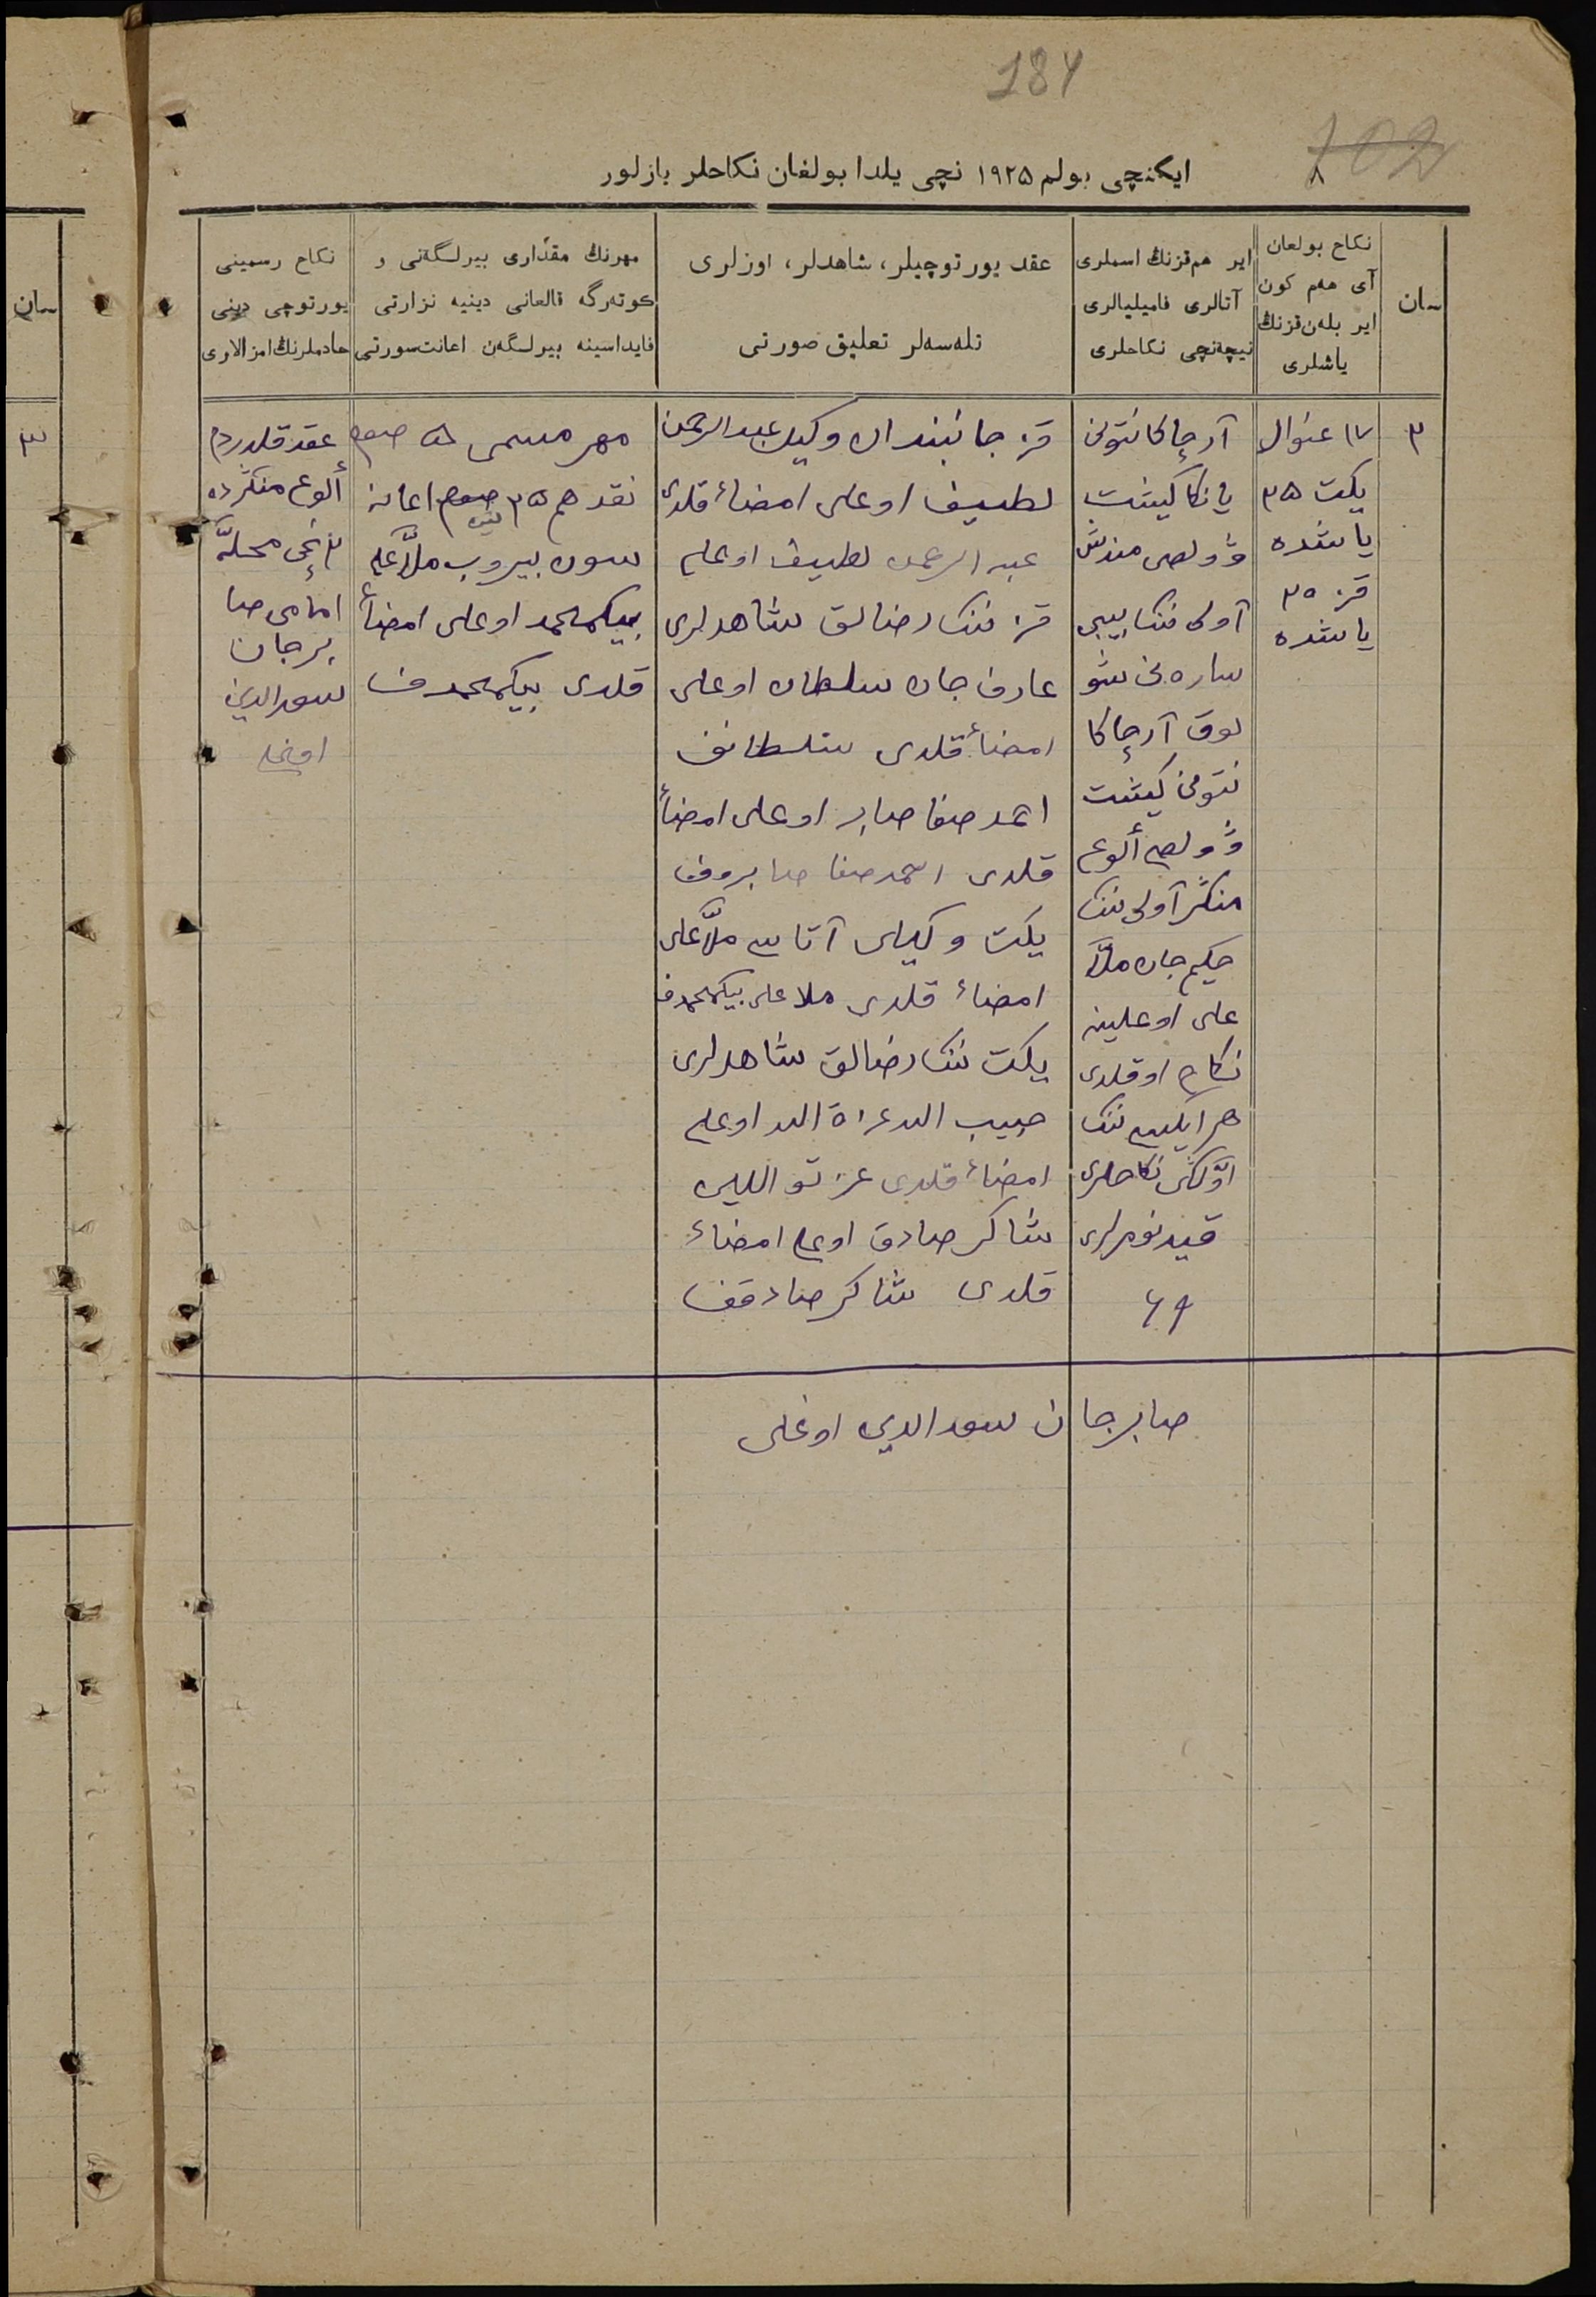 184
102
ایکنچی بولم ۱۹۲۵ نچی یلدا بولغان نکاحلر یازلور
سان
نکاح بولغان
آی هەم کون
ایر بلەن قزنڭ
یاشلری
ایر هم قزنڭ اسملری
آتالری فامیلیالری
نیچەنچی نکاحلری
عقد یورتوچیلر، شاهدلر، اوزلری
تلەسەلر تعلیق صورتی
مهرنڭ مقداری بیرلگەنی و
کوتەرگە قالغانی دینیه نزارتی
فایداسینه بیرلگەن اعانت سورتی
نکاح رسمینی
یورتوچی دینی
خادملرنڭ امزالاری
سان
۳
۳
۱۷
یکت ۲۵
یاشده
قز ۲۵
یاشده
یانکا کیشت
آولی ننک بیبی
ساره نی شو
کیشت
منکر آولی ننک
حکیم جان ملا
علی اوغلینه
نکاح اوقلدی
هر ایکیسی ننک
نکاحلری
قید نومرلری
۶۹
قز جانبندان وکیل عبدالرحمن
لطیف اوغلی امضاء قلدی
عبدالرحمن لطیف اوغلی
قز ننک رضالق شاهدلری
عارف جان سلطان اوغلی
امضاء قلدی سلطانف
احمد صفا صابر اوغلی امضاء
قلدی احمد صفا صابروف
یکت وکیلی آتاسی ملا علی
امضاء قلدی ملا علی بیکمحمدف
یکت ننک رضالق شاهدلری
حبیب الله عزة الله اوغلی
امضاء قلدی عزتواللین
شاکر صادق اوغلی امضاء
قلدی شاکر صادقف
مهر مسمی ۵۰ صوم
نقد هم ۲۵ اعانه
سون بیروب ملا علی
بیکمحمد اوغلی امضاء
قلدی بیکمحمدف
عقد قلدردم
ألوغ منکرده
۲ نچی محلّه
امامی صا
برجان
سعدالدین
اوغلی
صابرجان سعدالدین اوغلی